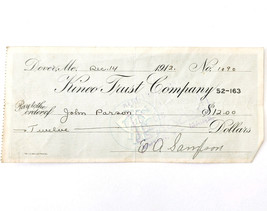 Dover, Me. Dec. 14 1912. No. 1090
Kineo Trust Company 52-163
Pay to the
order of John Parson $12.00
Twelve Dollars
E A Sampson